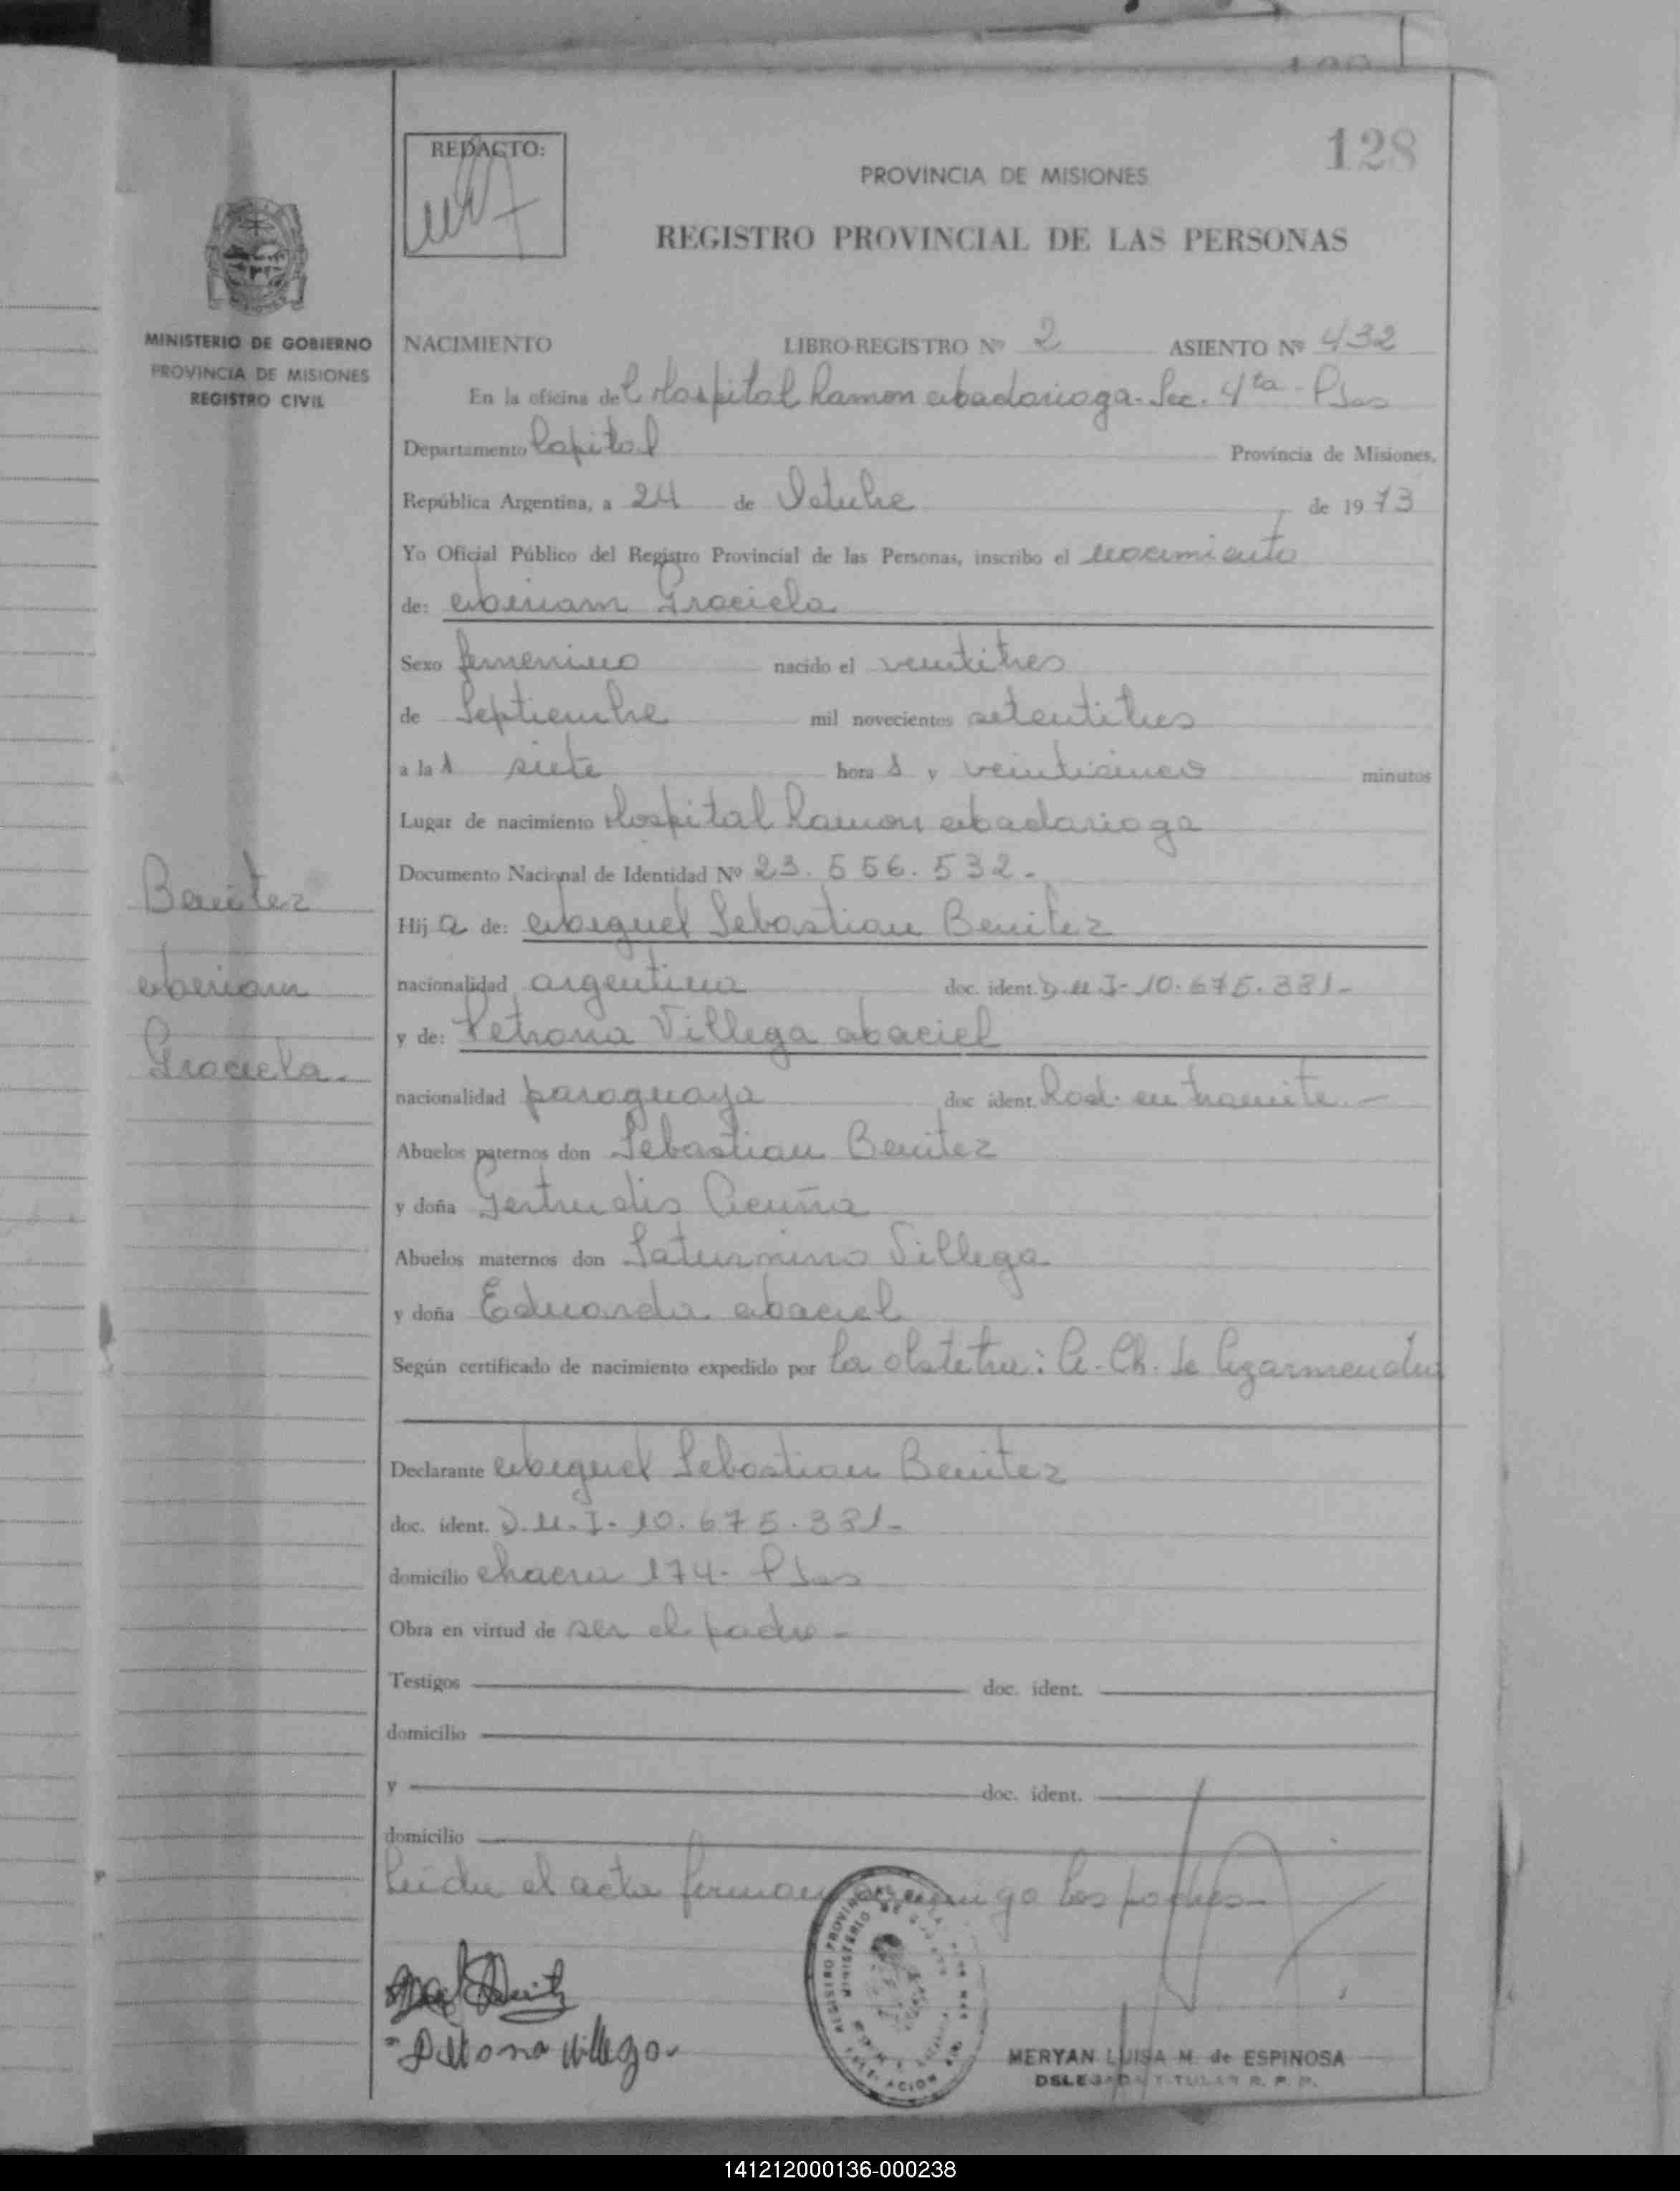 128
REDACTO:
PROVINCIA DE MISIONES
REGISTRO PROVINCIAL DE LAS PERSONAS
MINISTERIO DE GOBIERNO
PROVINCIA DE MISIONES
REGISTRO CIVIL
NACIMIENTO LIBRO-REGISTRO Nº 2 ASIENTO Nº 432
En la oficina del Hospital Ramon Madariaga - Sec. 4ta - Pdas
Departamento Capital Provincia de Misiones,
República Argentina, a 24 de Octubre de 1973
Yo Oficial Público del Registro Provincial de las Personas, inscribo el nacimiento
de: Miriam Graciela
Sexo femenino nacido el veintitres
de Septiembre mil novecientos setentitres
a las siete horas y veinticinco minutos
Lugar de nacimiento Hospital Ramon Madariaga
Documento Nacional de Identidad Nº 23.556.532.-
Benitez
Miriam
Graciela.-
Hija de: Miguel Sebastian Benitez
nacionalidad argentina doc. ident. D.N.I- 10.675.331-
y de: Petrona Villega Maciel
nacionalidad paraguaya doc ident. Rad. en tramite.-
Abuelos paternos don Sebastian Benitez
y doña Gertrudis Acuña
Abuelos maternos don Saturnino Villega
y doña Eduarda Maciel
Según certificado de nacimiento expedido por la obstetra: A. Ch. de Azarmendia
Declarante Miguel Sebastian Benitez
doc. ident. D.N.I- 10.675.331-
domicilio chacra 174- Pdas
Obra en virtud de ser el padre-
Testigos doc. ident.
domicilio
y doc. ident.
domicilio
Leida el acta firman conmigo los padres-
Petrona Villega
MERYAN LUISA M. de ESPINOSA
DELEGADA TITULAR R. P. P.
141212000136-000238